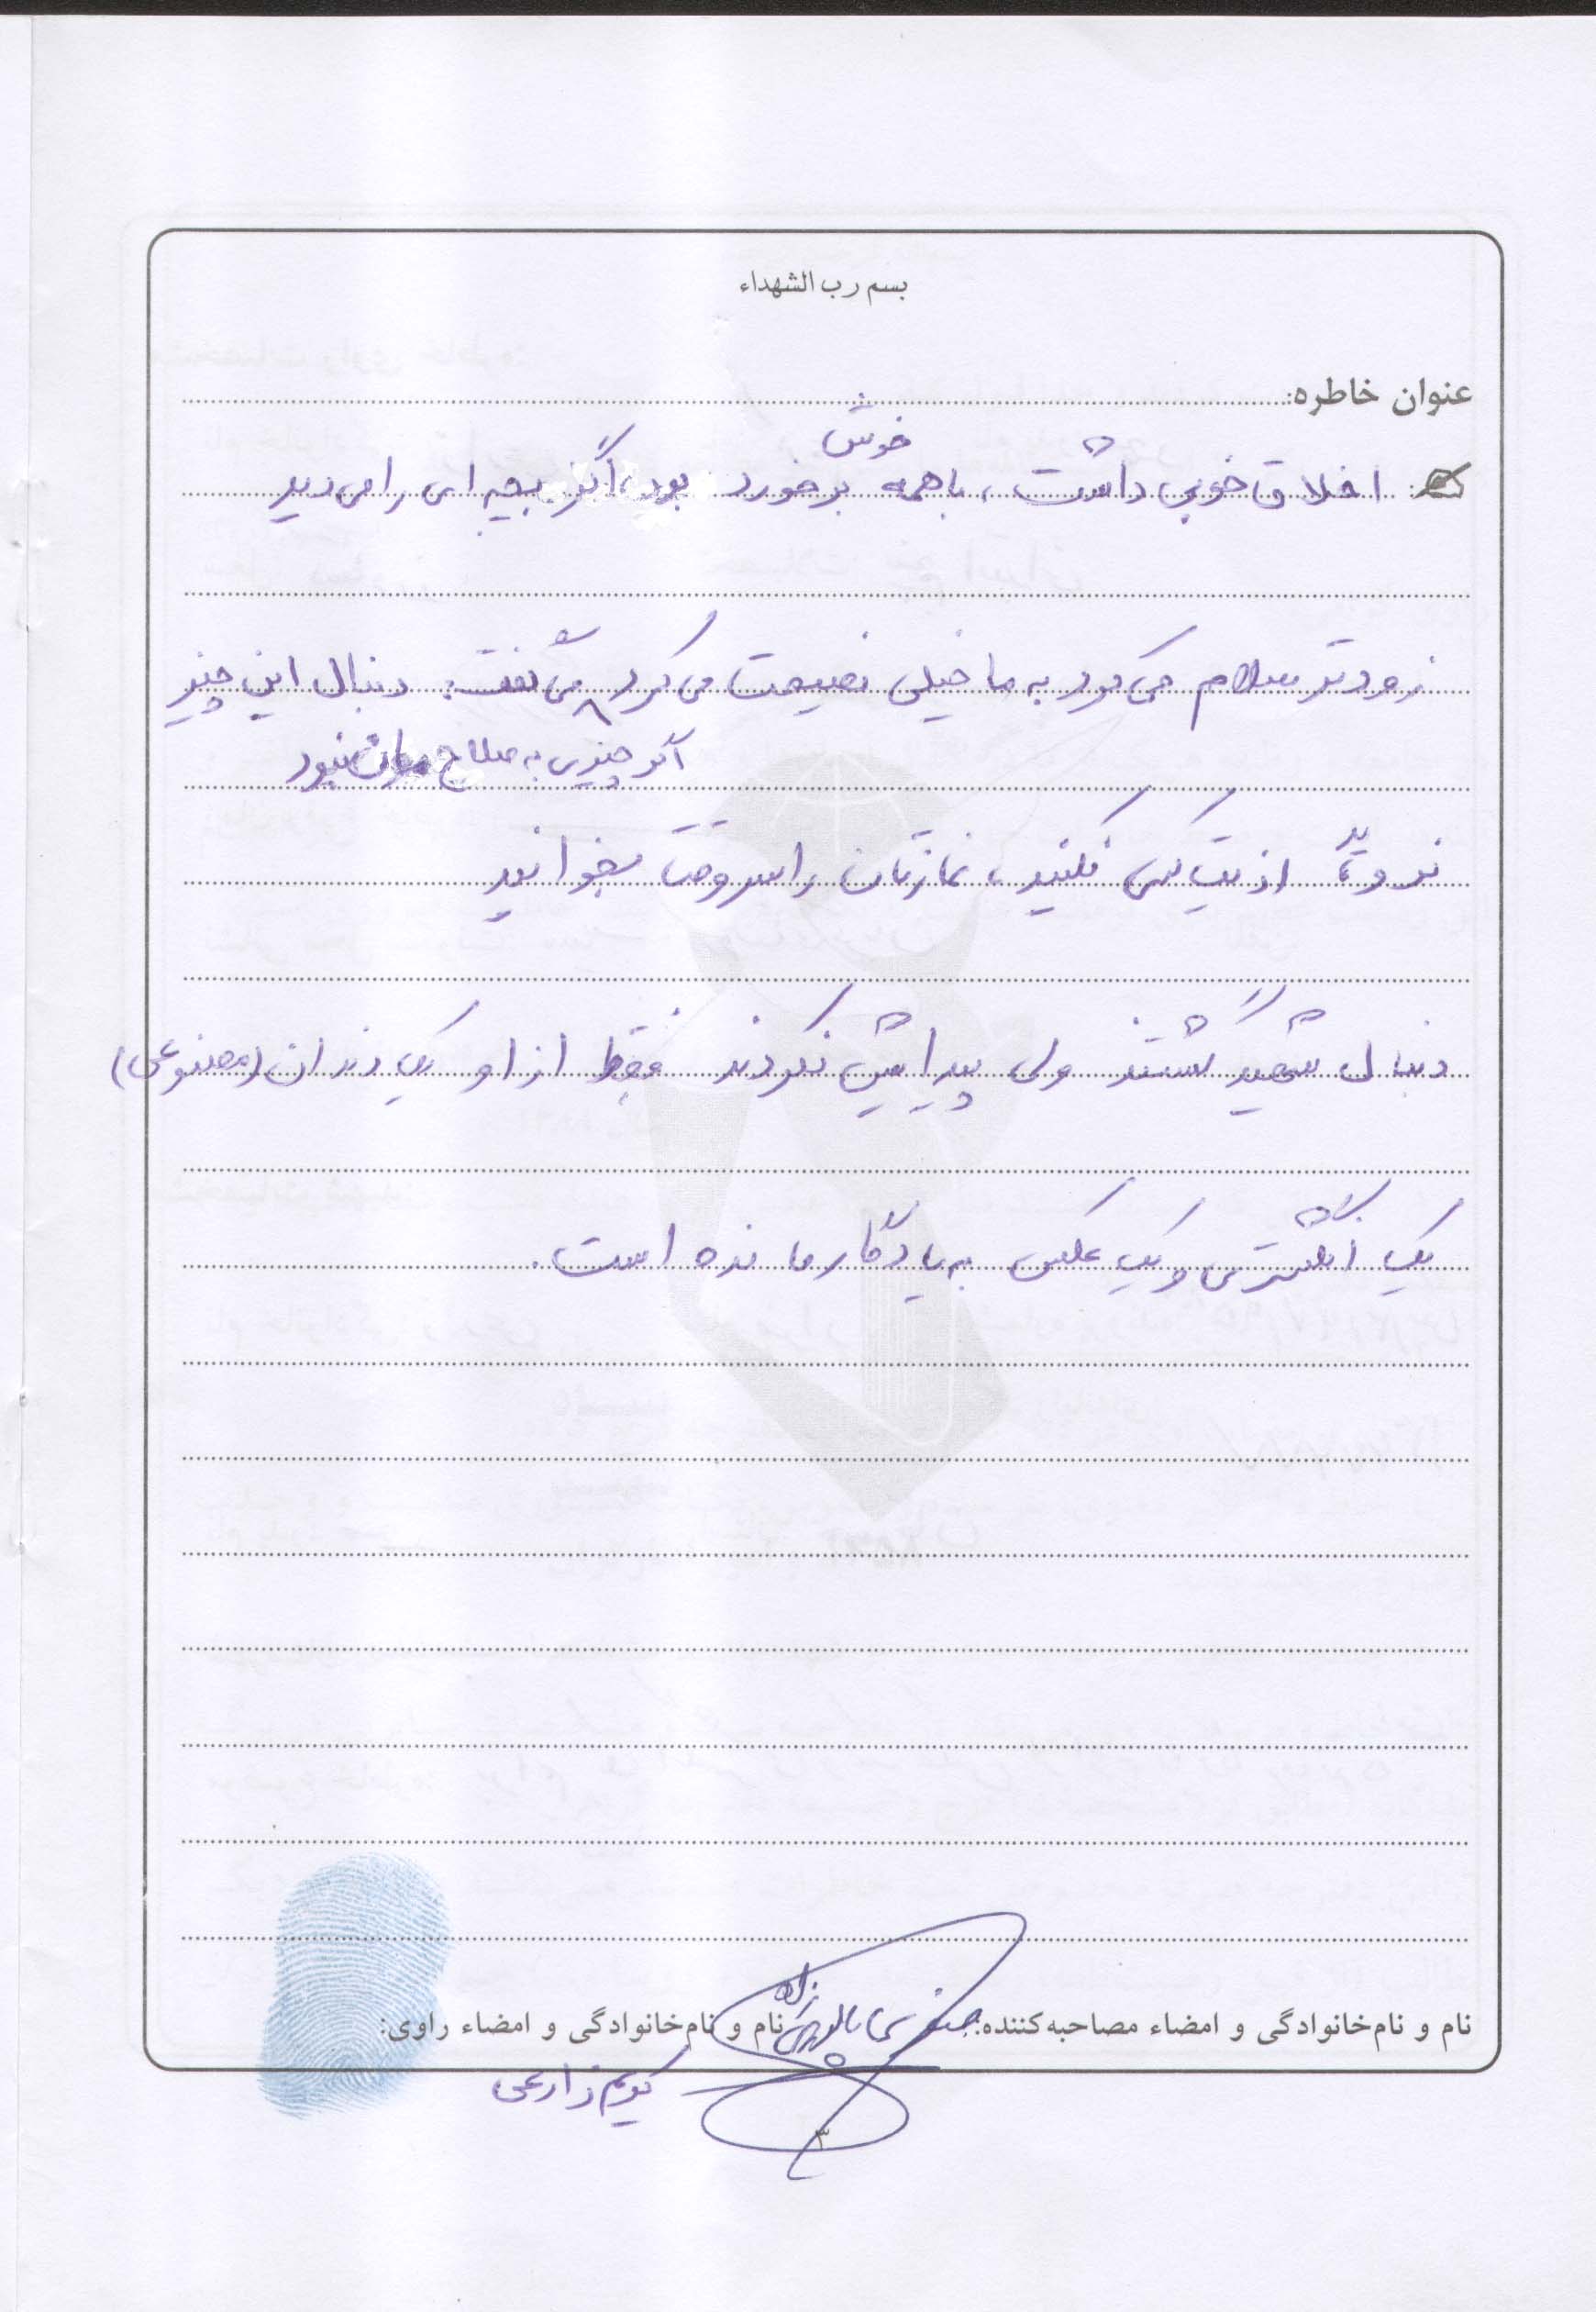 بسم رب الشهداء
عنوان خاطره:
خوش
اخلاق خوبی داشت، باهمه برخورد بود، اگر بچه ای را می دید
زودتر سلام می کرد به ما خیلی نصیحت می کرد می گفت: دنبال این چیز
اگر چیزی به صلاح نبود
نروید اذیت کسی نکنید، نمازتان را سروقت بخوانید
دنبال شهید گشتند ولی پیدایش نکردند فقط از او یک دندان (مصنوعی)
یک انگشتری و یک عکس به یادگار مانده است.
نام و نام‌خانوادگی و امضاء مصاحبه‌کننده: نام و نام‌خانوادگی و امضاء راوی:
کریم زارعی
۳